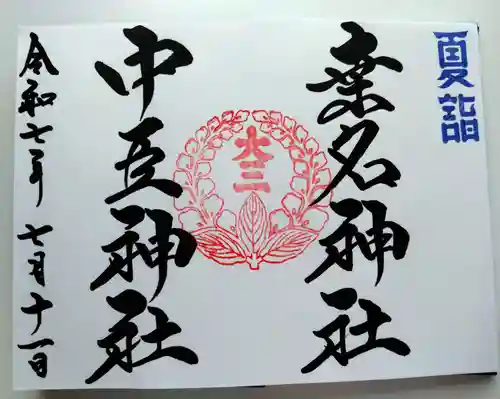 夏詣
桑名神社
大三
中臣神社
令和七年 七月十一日